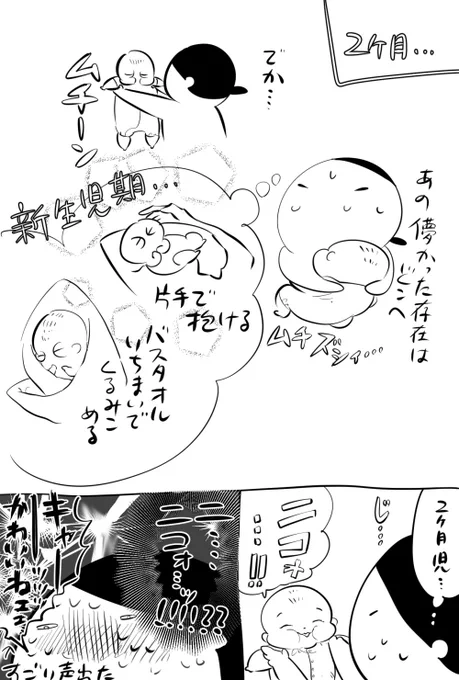 2ケ月…
でか…
ムチーン
あの儚かった存在は
どこへ
ムチズシィ…
新生児期…
片手で
抱ける
バスタオル
いちまいで
くるみこ
める
2ケ月児…
じ…
ニコォ
…!!
ニ…
ニコォ…ッ
!!!!??
キャー
かわいいねェ
すごい声出た